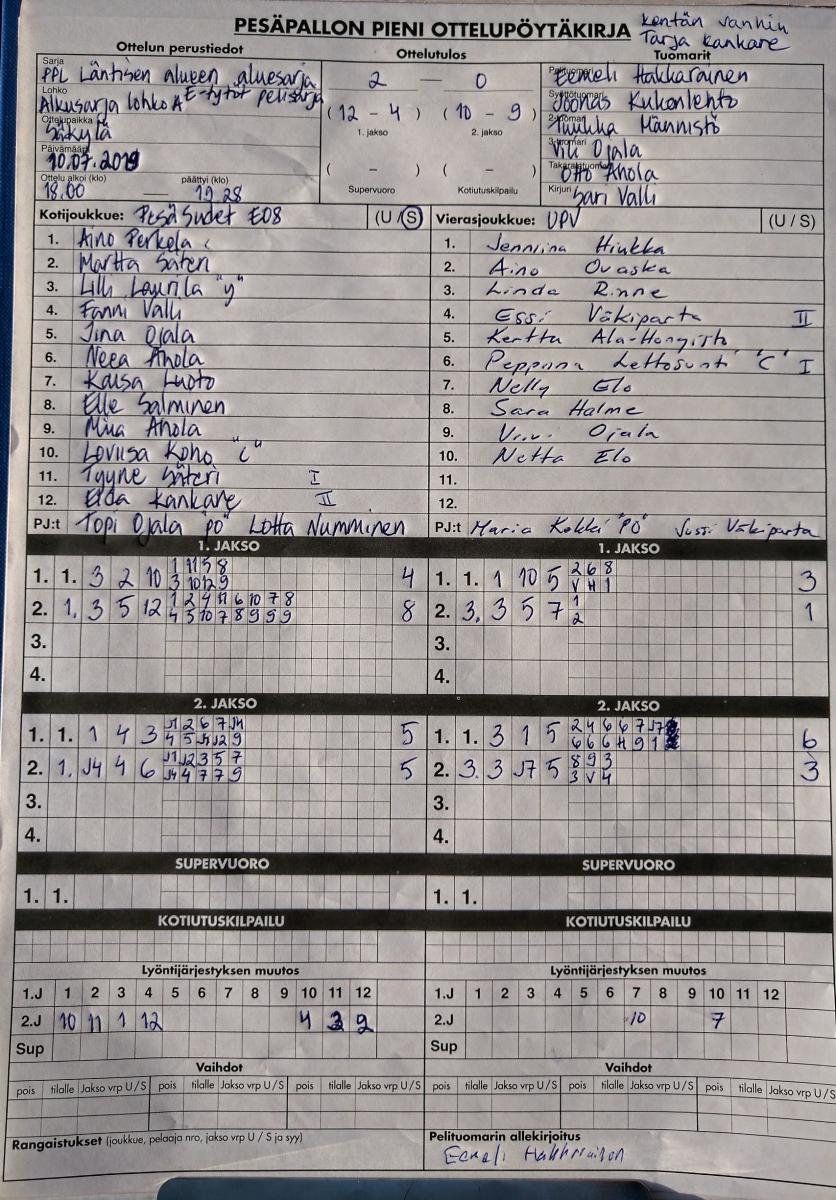 PESÄPALLON PIENI OTTELUPÖYTÄKIRJA
kentän vanhin
Tarja Kankare
Ottelun perustiedot
Ottelutulos
Tuomarit
Sarja
PPL Läntisen alueen aluesarja
Lohko
Alkusarja lohko A E-tytöt pelisarja
Ottelupaikka
Säkylä
Päivämäärä
10.07.2019
Ottelu alkoi (klo) päättyi (klo)
18.00 — 19.28
2 — 0
(12 - 4) (10 - 9)
1. jakso 2. jakso
( - ) ( - )
Supervuoro Kotiutuskilpailu
Pelituomari
Eemeli Hakkarainen
Syöttötuomari
Joonas Kukonlehto
2-tuomari
Tuukka Männistö
3-tuomari
Ojala
Takarajatuomari
Otto Ahola
Kirjuri
Sari Valli
Kotijoukkue: PesäSudet E08 (U / S)
1. Aino Perkola
2. Martta Säteri
3. Lilli Laurila "y"
4. Fanni Valli
5. Iina Ojala
6. Neea Ahola
7. Kaisa Luoto
8. Elle Salminen
9. Miia Ahola
10. Loviisa Koho "C"
11. Tyyne Säteri I
12. Elda Kankare II
PJ:t Topi Ojala "PÖ" Lotta Numminen
Vierasjoukkue: UPV (U / S)
1. Jenniina Hiukka
2. Aino Ovaska
3. Linda Rinne
4. Essi Väkiparta II
5. Kerttu Ala-Hongisto
6. Peppiina "C" I
7. Nelly Elo
8. Sara Halme
9. Ojala
10. Netta Elo
11.
12.
PJ:t Maria Kokki "PÖ" Jussi Väkiparta
1. JAKSO
1. 1. 3 2 10 1 11 5 8 4
3 10 12 9
2. 1. 3 5 12 1 2 4 11 6 10 7 8 8
4 5 10 7 8 9 9 9
3.
4.
1. JAKSO
1. 1. 1 10 5 2 6 8 3
V H 1
2. 3. 3 5 7 1 1
2
3.
4.
2. JAKSO
1. 1. 1 4 3 J1 2 6 7 J4 5
4 5 J1 J2 9
2. 1. J4 4 6 J1 J2 3 5 7 5
J4 4 7 7 9
3.
4.
2. JAKSO
1. 1. 3 1 5 2 4 6 6 7 J7 6
6 6 6 H 9 1
2. 3. 3 J7 5 8 9 3 3
3 V 4
3.
4.
SUPERVUORO
1. 1.
SUPERVUORO
1. 1.
KOTIUTUSKILPAILU
KOTIUTUSKILPAILU
Lyöntijärjestyksen muutos
1.J 1 2 3 4 5 6 7 8 9 10 11 12
2.J 10 11 1 12 4 3 2
Sup
Lyöntijärjestyksen muutos
1.J 1 2 3 4 5 6 7 8 9 10 11 12
2.J 10 7
Sup
Vaihdot
pois tilalle Jakso vrp U / S pois tilalle Jakso vrp U / S pois tilalle Jakso vrp U / S
Vaihdot
pois tilalle Jakso vrp U / S pois tilalle Jakso vrp U / S pois tilalle Jakso vrp U / S
Rangaistukset (joukkue, pelaaja nro, jakso vrp U / S ja syy)
Pelituomarin allekirjoitus
Eemeli Hakkarainen